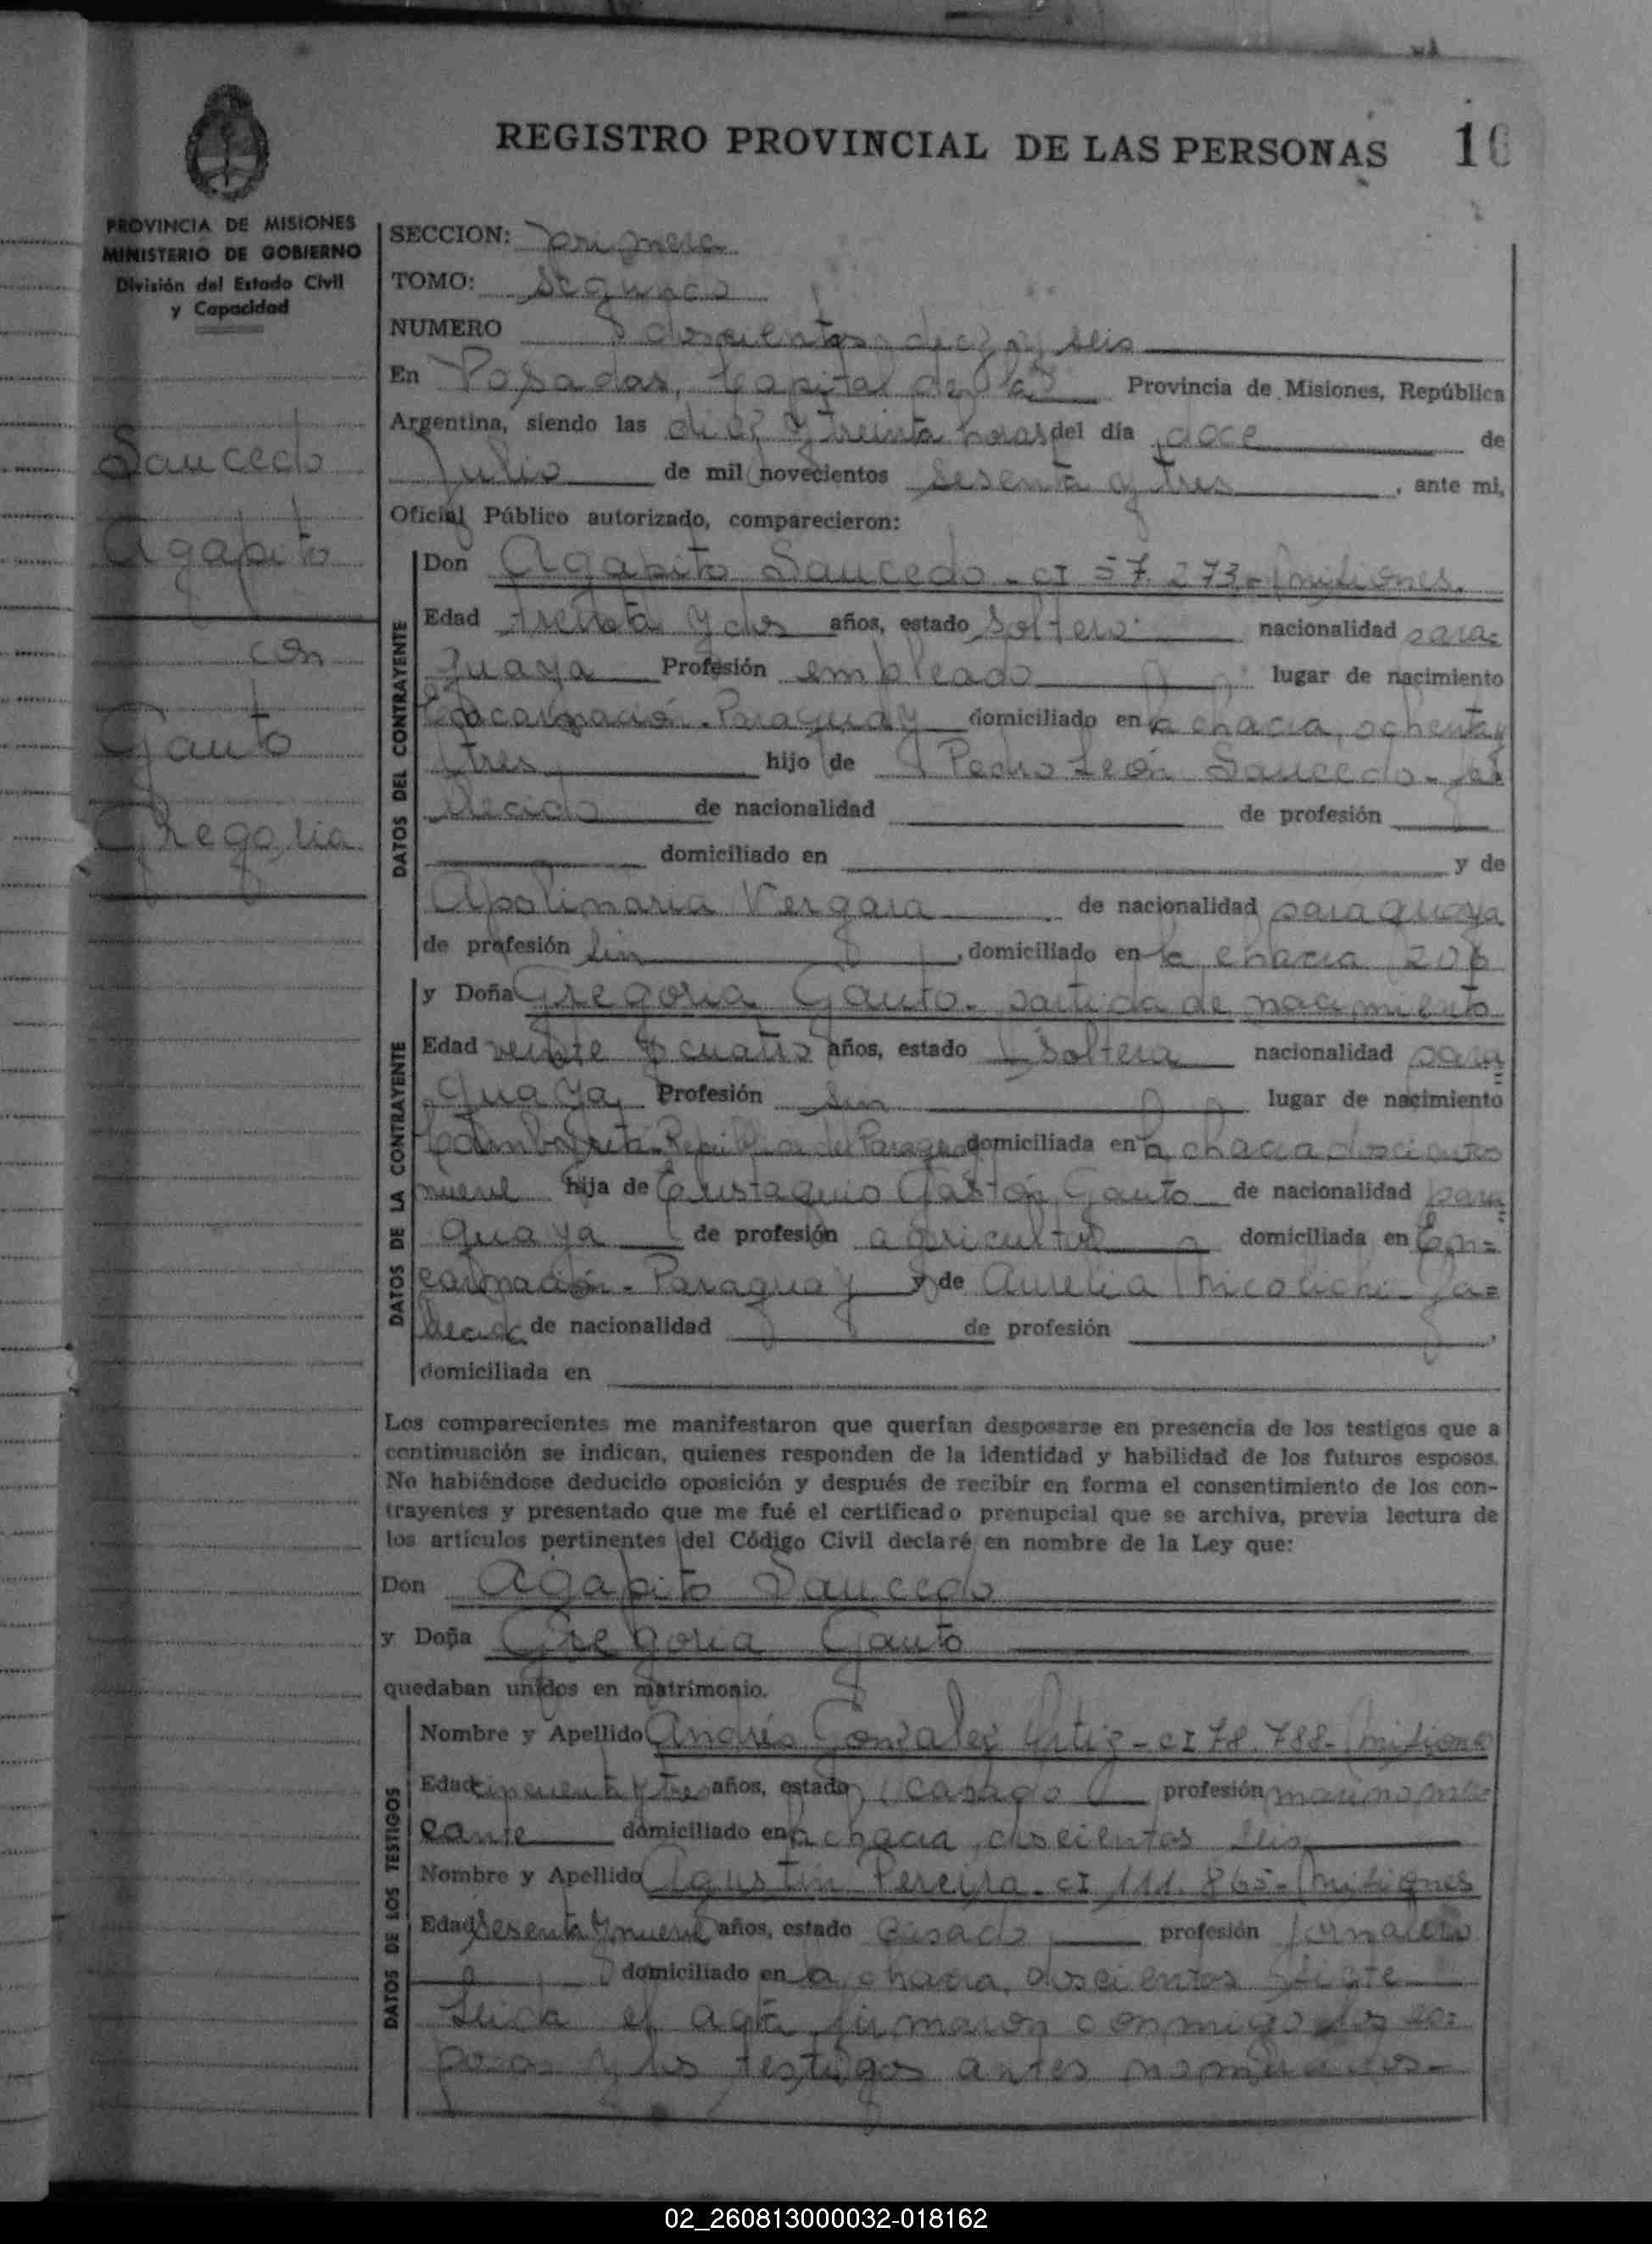 REGISTRO PROVINCIAL DE LAS PERSONAS 16
PROVINCIA DE MISIONES
MINISTERIO DE GOBIERNO
División del Estado Civil
y Capacidad
Saucedo
Agapito
con
Gauto
Gregoria
SECCION: primera
TOMO: segundo
NUMERO doscientos diez y seis
En Posadas, Capital de la Provincia de Misiones, República
Argentina, siendo las diez y treinta horas del día doce de
Julio de mil novecientos sesenta y tres, ante mi,
Oficial Público autorizado, comparecieron:
DATOS DEL CONTRAYENTE
Don Agapito Saucedo - CI 57.273 - Misiones.
Edad treinta y dos años, estado soltero nacionalidad para=
guaya Profesión empleado lugar de nacimiento
Encarnación - Paraguay domiciliado en la chacra, ochenta y
tres hijo de Pedro León Saucedo - fa
llecido de nacionalidad de profesión
domiciliado en y de
Apolinaria Vergara de nacionalidad paraguaya
de profesión sin, domiciliado en la chacra 206
DATOS DE LA CONTRAYENTE
y Doña Gregoria Gauto - partida de nacimiento
Edad veinte y cuatro años, estado soltera nacionalidad para=
guaya, Profesión sin lugar de nacimiento
Cambyretá - República del Paraguay domiciliada en la chacra doscientos
nueve hija de Eustaquio Gastón Gauto de nacionalidad para=
guaya de profesión agricultor domiciliada en En=
carnación - Paraguay y de Aurelia Nicolichi - fa=
llecida de nacionalidad de profesión,
domiciliada en
Los comparecientes me manifestaron que querían desposarse en presencia de los testigos que a
continuación se indican, quienes responden de la identidad y habilidad de los futuros esposos.
No habiéndose deducido oposición y después de recibir en forma el consentimiento de los con-
trayentes y presentado que me fué el certificado prenupcial que se archiva, previa lectura de
los artículos pertinentes del Código Civil declaré en nombre de la Ley que:
Don Agapito Saucedo
y Doña Gregoria Gauto
quedaban unidos en matrimonio.
DATOS DE LOS TESTIGOS
Nombre y Apellido Andrés Gonzalez Ortiz - CI 78.788 - Misiones
Edad cincuenta y tres años, estado casado profesión marino mer
cante domiciliado en la chacra, doscientos seis
Nombre y Apellido Agustín Pereira - CI 111.865 - Misiones
Edad sesenta y nueve años, estado casado profesión jornalero
domiciliado en la chacra, doscientos siete
Leida el acta firmaron conmigo los es=
posos y los testigos antes nombrados -
02_260813000032-018162